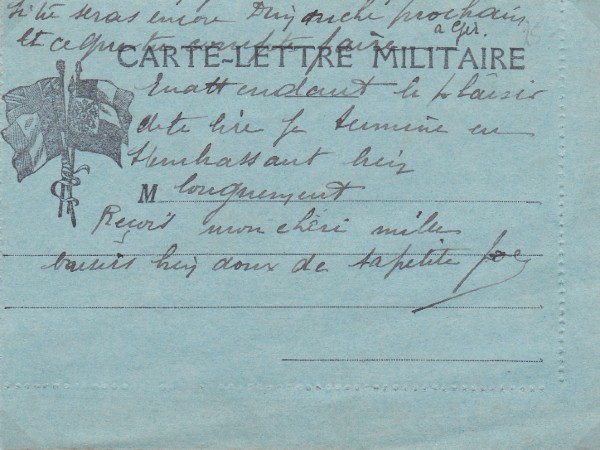 si tu seras encore Dimanche prochain
à Gér.
et ce que tu comptes faire
CARTE-LETTRE MILITAIRE
En attendant le plaisir
de te lire je termine en
t'embrassant bien
M longuement
Reçois mon chéri mille
baisers bien doux de ta petite